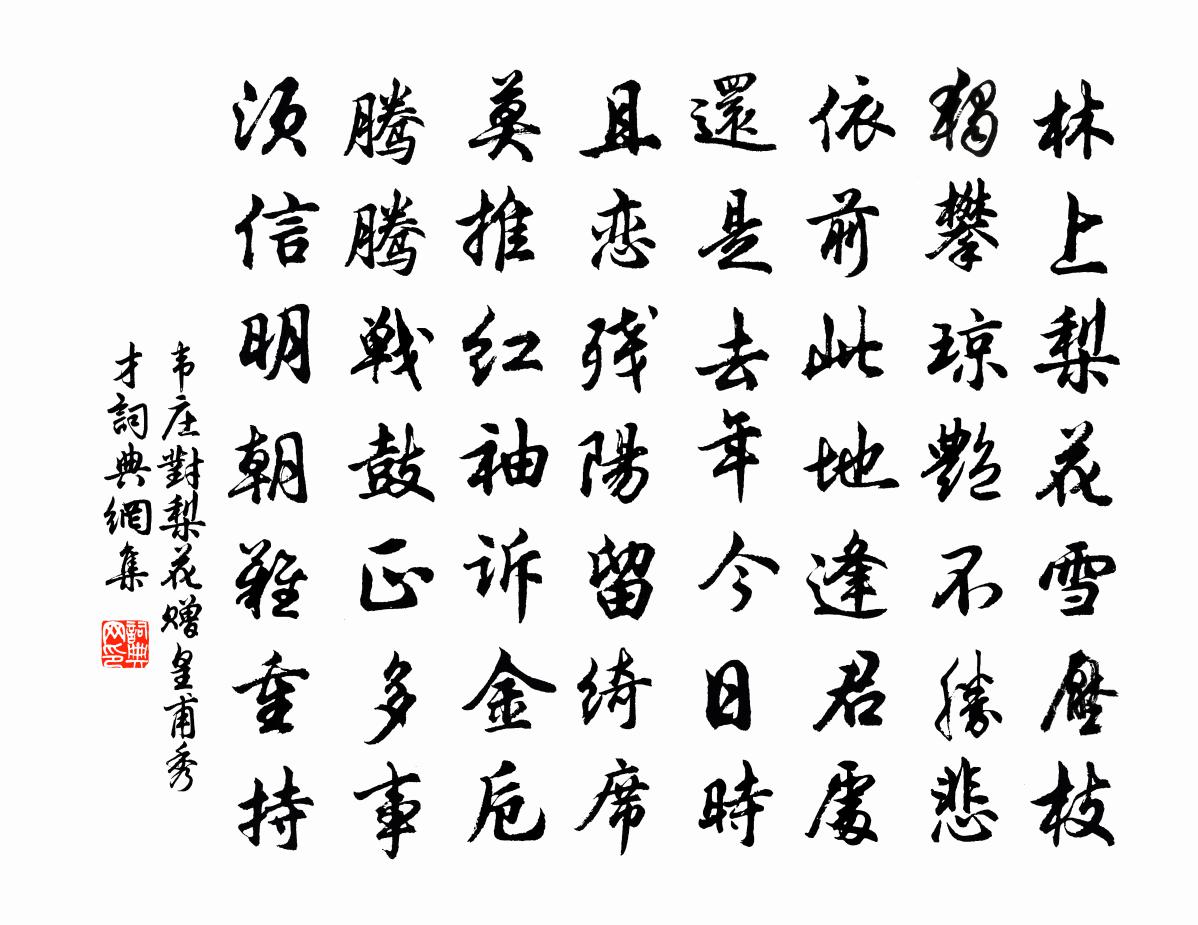 林上梨花雪壓枝
獨攀瓊艷不勝悲
依前此地逢君處
還是去年今日時
且恋残陽留綺席
莫推红袖诉金卮
騰騰戰鼓正多事
須信明朝難重持
韦庄對梨花赠皇甫秀
才詞典網集
詞典网印